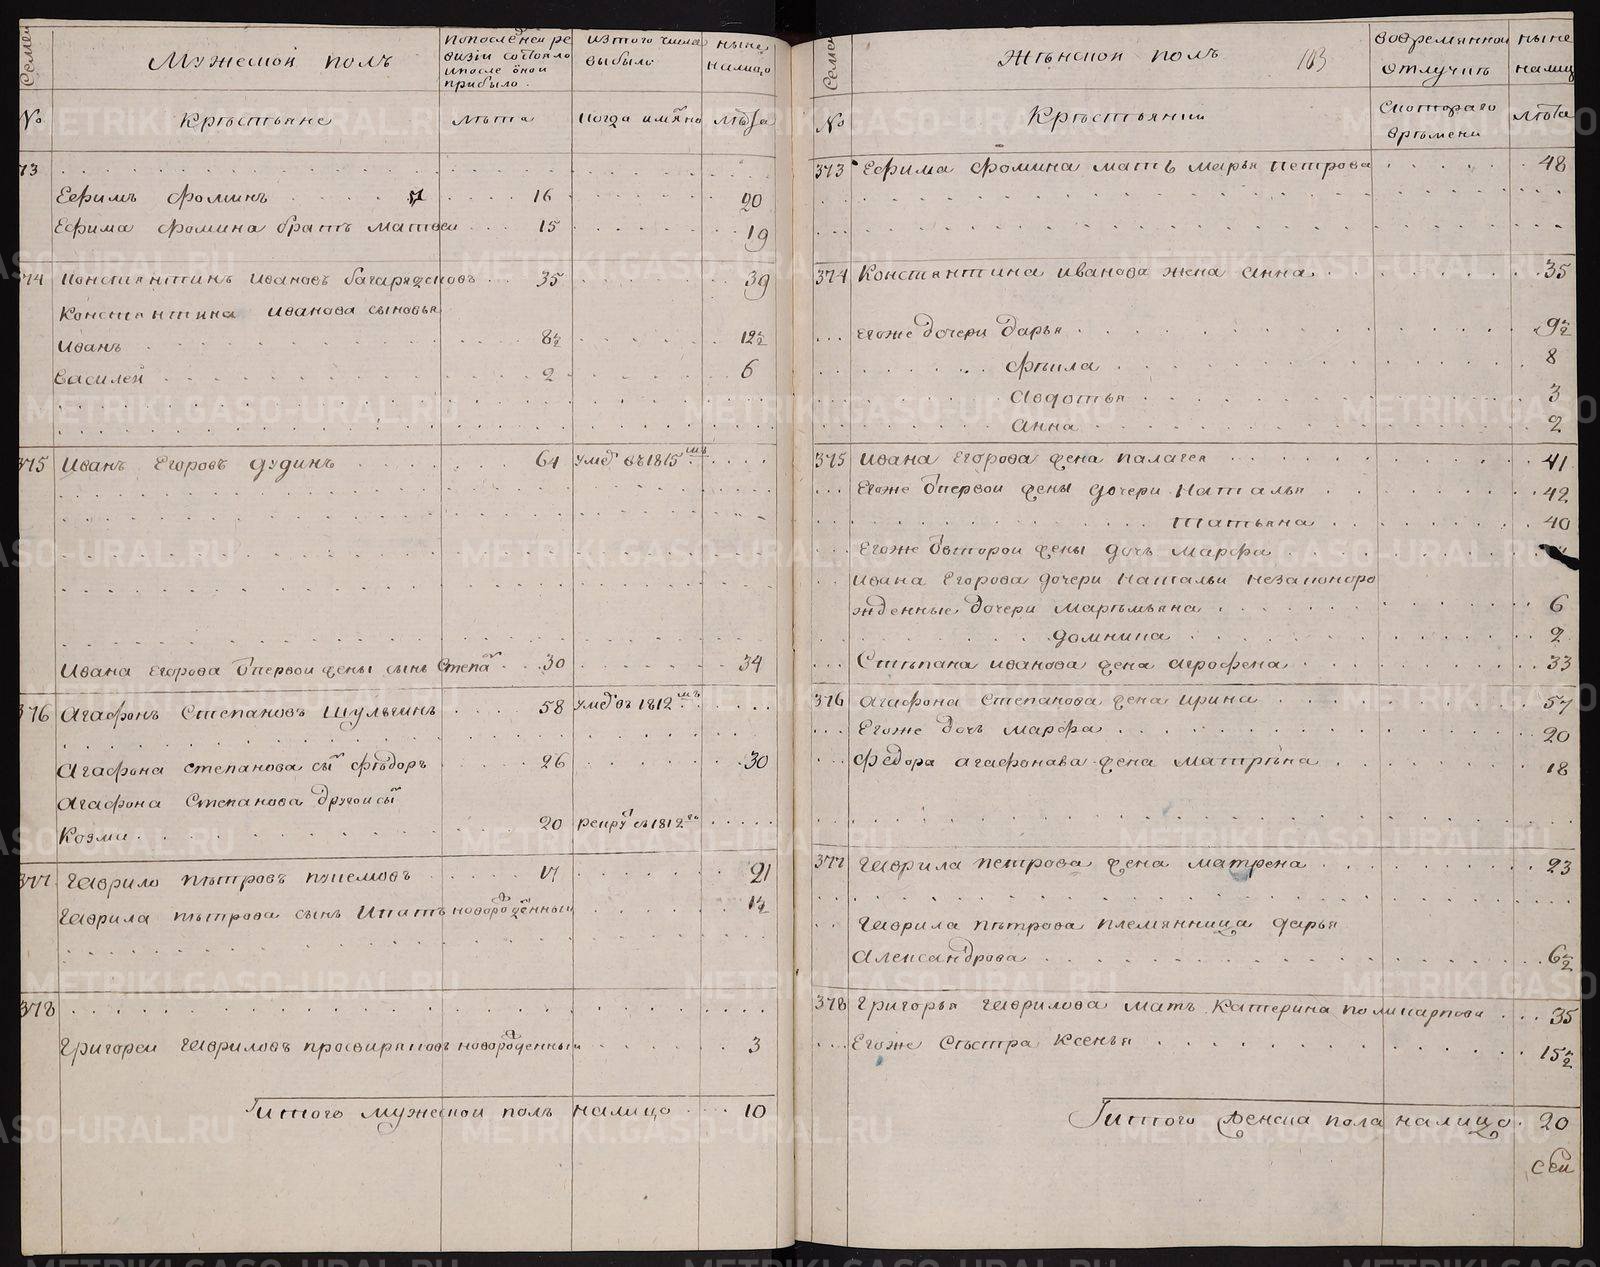 Семеи
Мужескои полъ
попоследнеи ре
визiи состояло
ипосле онои
прибыло.
изтого числа
выбыло
ныне
налицо
№
Крѣстьяне
лѣта
когда имянно
лѣта
73
Ефимъ Фоминъ 16 20
Ефима Фомина братъ Матвеи 15 19
374 Константинъ Ивановъ 35 39
Константина Иванова сыновья
Иванъ 8½ 12½
Василеи 2 6
375 Иванъ Егоровъ Дудинъ 64 умеръ въ 1815мъ
Ивана Егорова спервои жены сынъ Степанъ 30 34
376 Агафонъ Степановъ Шулгинъ 58 умеръ въ 1812мъ
Агафона Степанова сынъ Фѣдоръ 26 30
Агафона Степанова другои сынъ
Козма 20 рекрутъ съ 1812го
377 Гаврило Пѣтровъ 17 21
Гаврила Пѣтрова сынъ Ипатъ новорожденныи 1½
378
Григореи Гавриловъ Просвиряковъ новорожденныи 3
Iитого мужескои полъ налицо 10
Семеи
Жѣнскои полъ
103
вовремяннои
отлучкѣ
ныне
налицо
№
Крѣстьянки
скотораго
врѣмени
лѣта
373 Ефима Фомина мать Марья Петрова 48
374 Константина Иванова жена Анна 35
Егоже дочери Дарья 9½
Фѣкла 8
Авдотья 3
Анна 2
375 Ивана Егорова жена Палагея 41
Егоже спервои жены дочери Наталья 42
Татьяна 40
Егоже swторои жены дочь Марфа
Ивана Егорова дочери Натальи незаконоро
жденные дочери Марѣмьяна 6
Домника 2
Стѣпана Иванова жена Агрофена 33
376 Агафона Степанова жена Ирина 57
Егоже дочь Марфа 20
Федора Агафонава жена Матрѣна 18
377 Гаврила Петрова жена Матрена 23
Гаврила Пѣтрова племянница Дарья
Александрова 6½
378 Григорья Гаврилова мать Катерина Поликарпова 35
Егоже сѣстра Ксенья 15½
Iитого женска пола налицо 20
METRIKI.GASO-URAL.RU